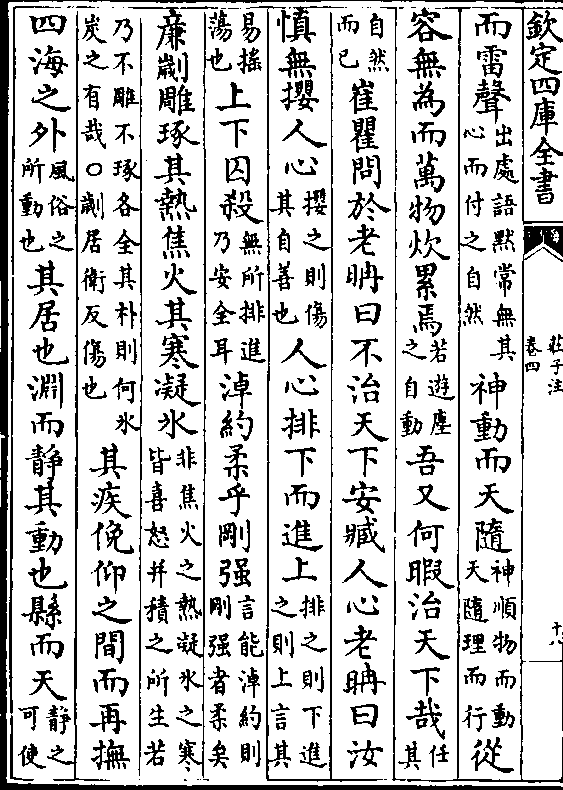 欽定四庫全書
莊子注
卷四
十八
而雷聲出處語默常無其心而付之自然神動而天隨神順物而動天隨理而行從
容無為而萬物炊累焉若遊塵之自動吾又何暇治天下哉任其
自然而已崔瞿問於老聃曰不治天下安臧人心老聃曰汝
慎無攖人心攖之則傷其自善也人心排下而進上排之則下進之則上言其
易搖蕩也上下囚殺無所排進乃安全耳淖約柔乎剛强言能淖約則剛强者柔矣
廉劌雕琢其熱焦火其寒凝氷非焦火之熱凝氷之寒皆喜怒并積之所生若
乃不雕不琢各全其朴則何氷炭之有哉○劌居衛反傷也其疾俛仰之間而再撫
四海之外風俗之所動也其居也淵而靜其動也縣而天靜之可使